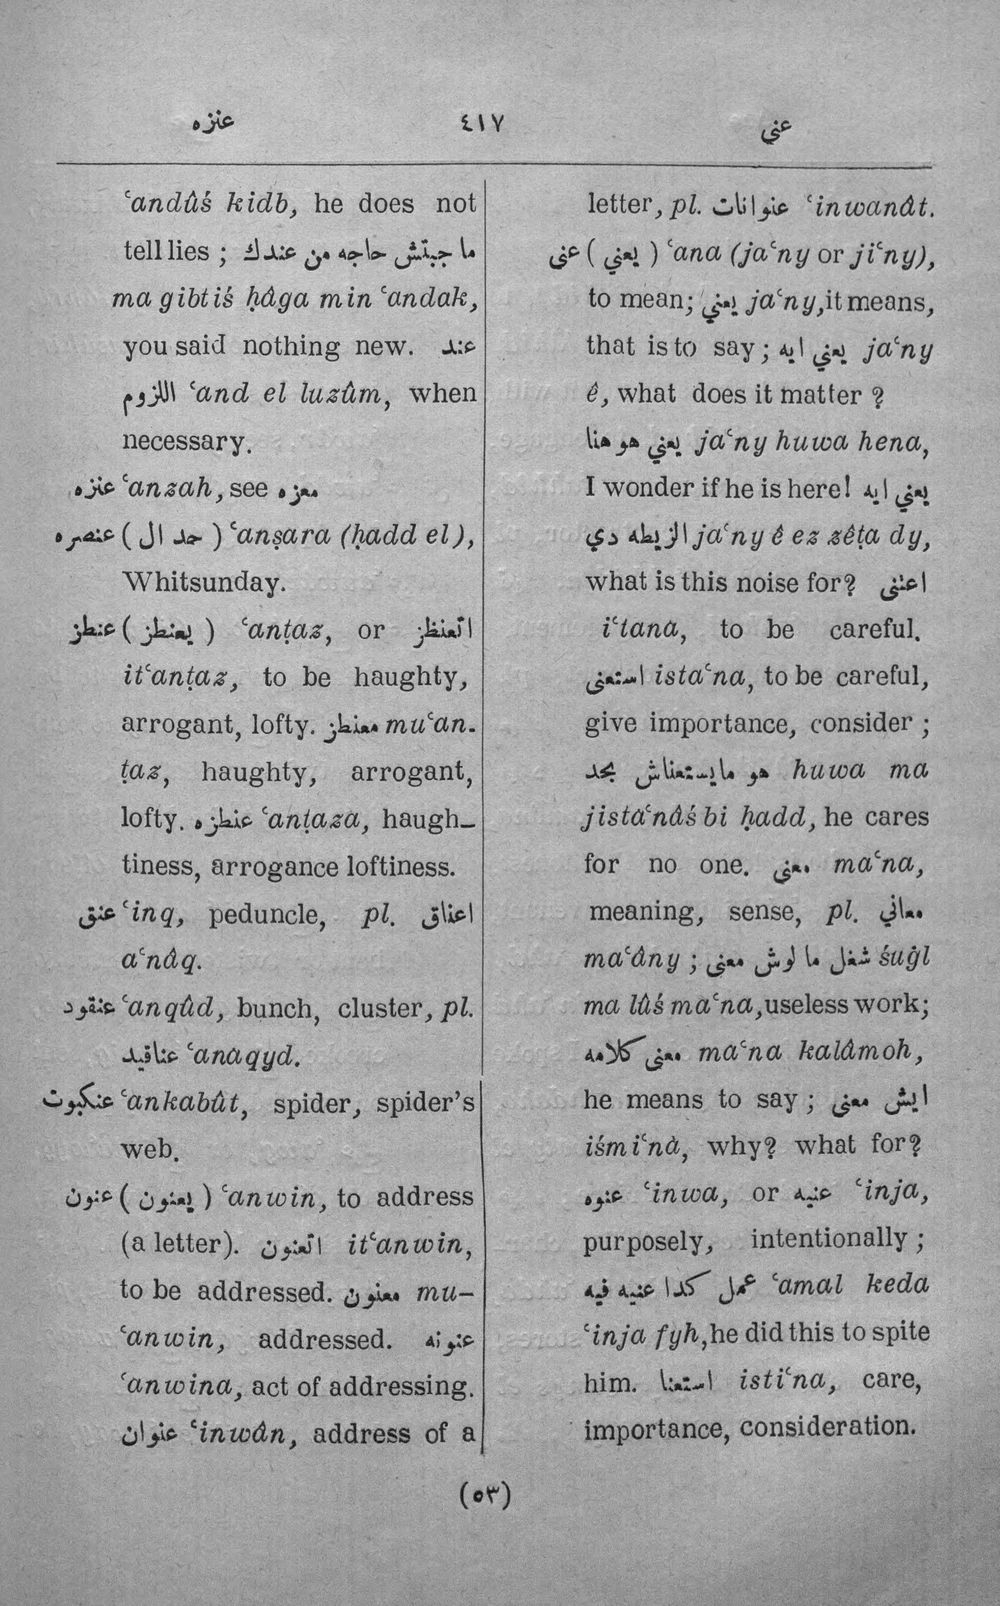 عنزه ٤١٧ عني
ʿandûś kidb, he does not
tell lies ; ما جبتش حاجه من عندك
ma gibtiś ḥâga min ʿandak,
you said nothing new. عند
اللزوم ʿand el luzûm, when
necessary.
عنزه ʿanzah, see معزه
عنصره ( حد ال ) ʿanṣara (ḥadd el),
Whitsunday.
عنطز ( يعنطز ) ʿanṭaz, or اتعنظز
itʿanṭaz, to be haughty,
arrogant, lofty. معنطز muʿan-
ṭaz, haughty, arrogant,
lofty. عنطزه ʿanṭaza, haugh-
tiness, arrogance loftiness.
عنق ʿinq, peduncle, pl. اعناق
aʿnâq.
عنقود ʿanqûd, bunch, cluster, pl.
عناقيد ʿanaqyd.
عنكبوت ʿankabût, spider, spider's
web.
عنون ( يعنون ) ʿanwin, to address
(a letter). اتعنون itʿanwin,
to be addressed. معنون mu-
ʿanwin, addressed. عنونه
ʿanwina, act of addressing.
عنوان ʿinwân, address of a
letter, pl. عنوانات ʿinwanât.
عنى ( يعني ) ʿana (jaʿny or jiʿny),
to mean; يعني jaʿny, it means,
that is to say ; يعني ايه jaʿny
ê, what does it matter ?
يعني هو هنا jaʿny huwa hena,
I wonder if he is here! يعني ايه
الزيطه دي jaʿny ê ez zêṭa dy,
what is this noise for? اعتنى
iʿtana, to be careful.
استعنى istaʿna, to be careful,
give importance, consider ;
هو مايستعناش بحد huwa ma
jistaʿnâś bi ḥadd, he cares
for no one. معني maʿna,
meaning, sense, pl. معاني
maʿâny ; شغل ما لوش معنى śuġl
ma lûś maʿna, useless work;
معنى كلامه maʿna kalâmoh,
he means to say ; ايش معنى
iśmiʿnà, why? what for?
عنوه ʿinwa, or عنيه ʿinja,
purposely, intentionally ;
عمل كدا عنيه فيه ʿamal keda
ʿinja fyh, he did this to spite
him. استعنا istiʿna, care,
importance, consideration.
(٥٣)